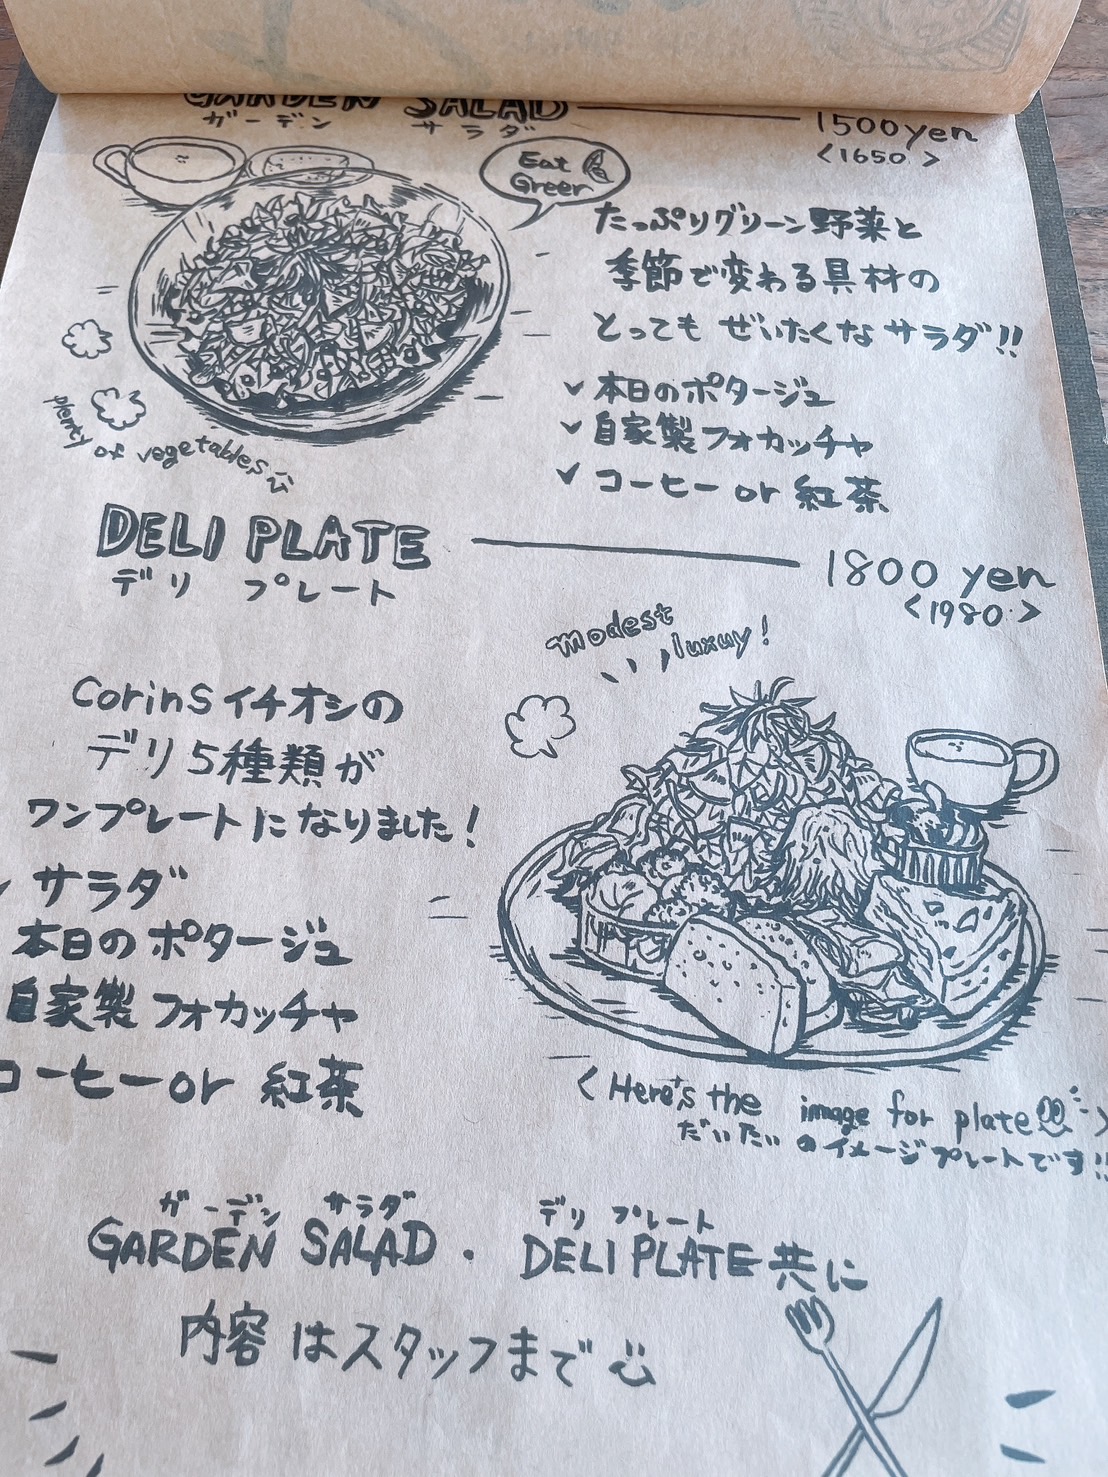 GARDEN SALAD 1500yen
ガーデン サラダ <1650>
Eat
Green
たっぷりグリーン野菜と
季節で変わる具材の
とっても ぜいたくなサラダ!!
✓ 本日のポタージュ
✓ 自家製フォカッチャ
✓ コーヒー or 紅茶
plenty of vegetables
DELI PLATE 1800 yen
デリ プレート <1980>
modest
luxuy!
Corinsイチオシの
デリ5種類が
ワンプレートになりました!
サラダ
本日のポタージュ
自家製フォカッチャ
コーヒー or 紅茶
<Here's the image for plate>
だいたいのイメージプレートです!!
ガーデン サラダ デリ プレート
GARDEN SALAD・DELI PLATE共に
内容はスタッフまで